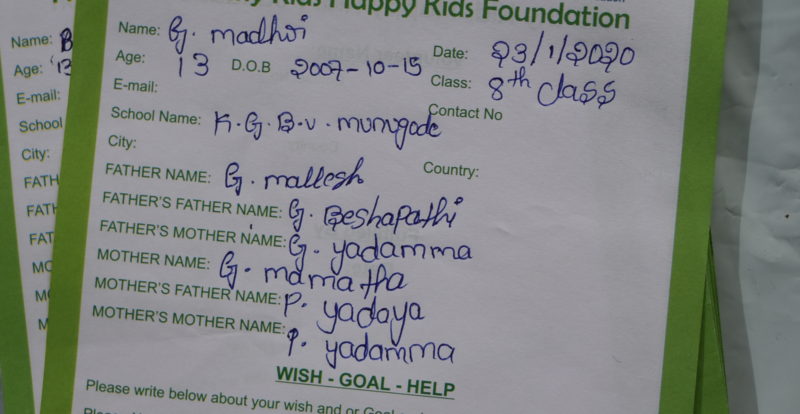 Kids Happy Kids Foundation
Name: G. madhvi
Date: 23/1/2020
Age: 13 D.O.B 2007-10-15
Class: 8th class
E-mail:
Contact No
School Name: K.G.B.V. munugode
City:
Country:
FATHER NAME: G. mallesh
FATHER'S FATHER NAME: G. Beshapathi
FATHER'S MOTHER NAME: G. yadamma
MOTHER NAME: G. mamatha
MOTHER'S FATHER NAME: P. yadaya
MOTHER'S MOTHER NAME: P. yadamma
WISH - GOAL - HELP
Please write below about your wish and or
Name: B
Age: 13
E-mail:
School
City:
FATH
FATH
FAT
MO
M
M